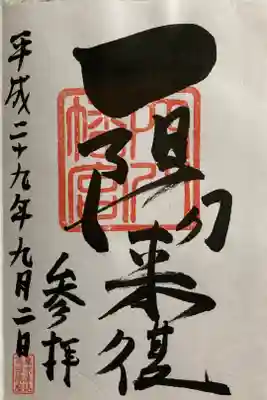 一陽来復
穴八
幡宮
参拝
平成二十九年九月二日